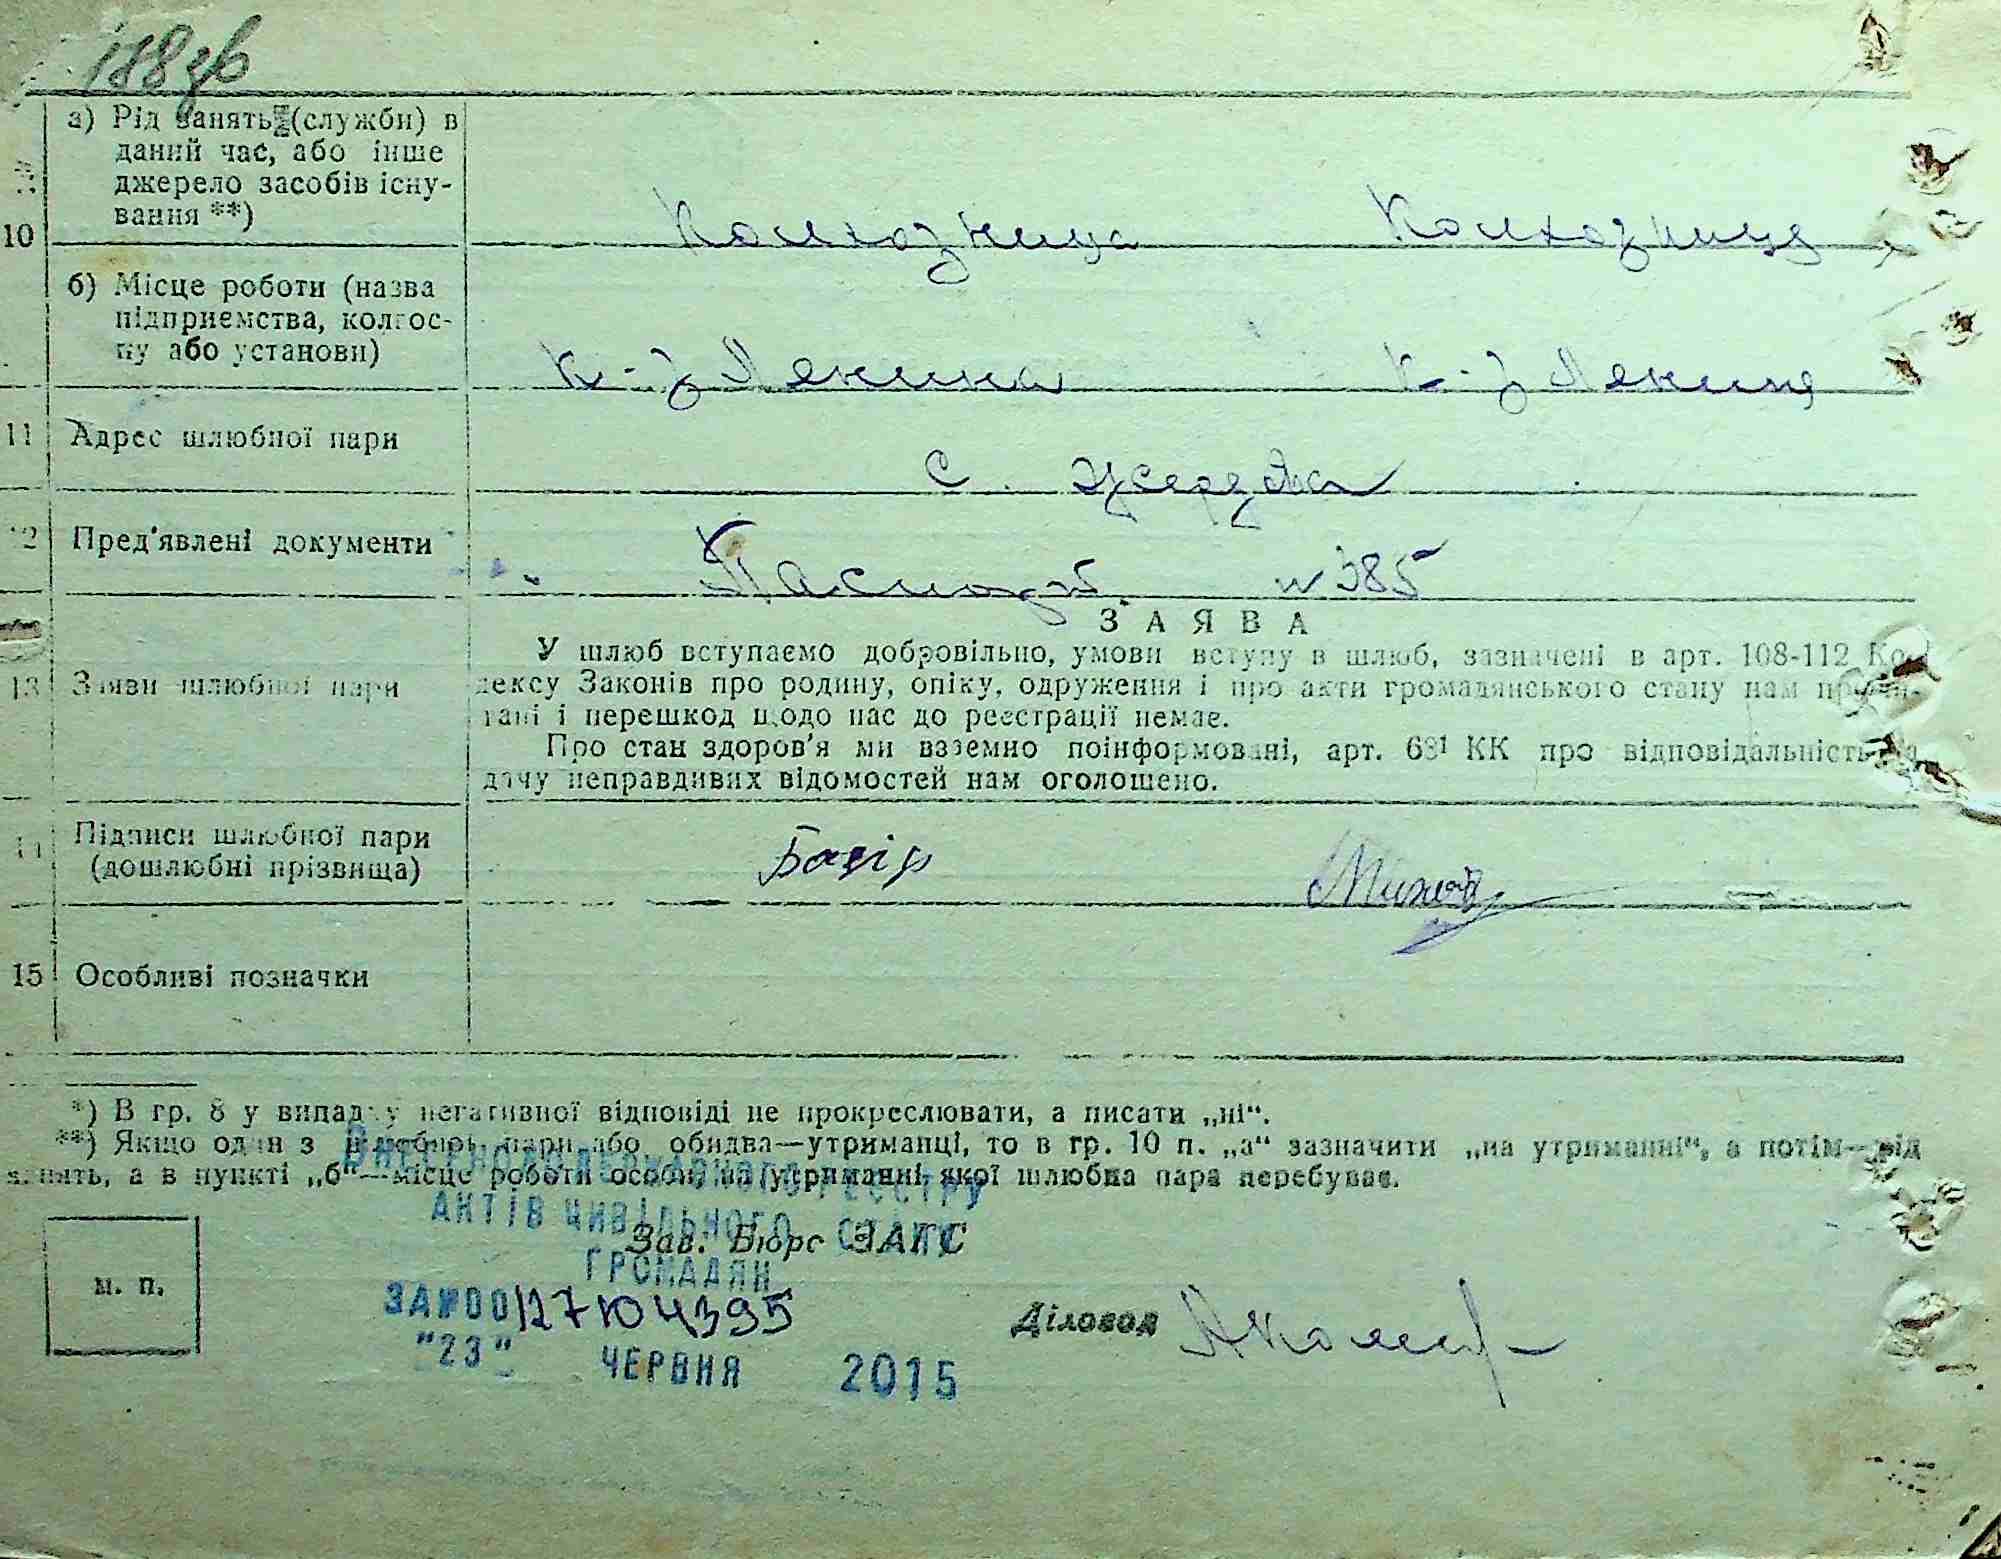 188зв
а) Рід занять (служби) в
даний час, або інше
джерело засобів існу-
вання **)
10
Колхозница Колхозница
б) Місце роботи (назва
підприємства, колгос-
пу або установи)
к-з Ленина к-з Ленина
11 Адрес шлюбної пари
с.
12 Пред'явлені документи
Паспорт № 385
ЗАЯВА
У шлюб вступаємо добровільно, умови вступу в шлюб, зазначені в арт. 108-112 Ко-
13 Заяви шлюбної пари
дексу Законів про родину, опіку, одруження і про акти громадянського стану нам прочи-
тані і перешкод щодо нас до реєстрації немає.
Про стан здоров'я ми взаємно поінформовані, арт. 68¹ КК про відповідальність за
дачу неправдивих відомостей нам оголошено.
14 Підписи шлюбної пари
(дошлюбні прізвища)
15 Особливі позначки
*) В гр. 8 у випадку негативної відповіді не прокреслювати, а писати „ні“.
**) Якщо один з шлюбної пари або обидва—утриманці, то в гр. 10 п. „а“ зазначити „на утриманні“, а потім—рід
занять, а в пункті „б“—місце роботи особи, на утриманні якої шлюбна пара перебуває.
ДЕРЖАВНОГО РЕЄСТРУ
АКТІВ ЦИВІЛЬНОГО СТАНУ
Зав. Бюро ЗАГС
ГРОМАДЯН
м. п.
ЗА №00127104395
Діловод
"23" ЧЕРВНЯ 2015